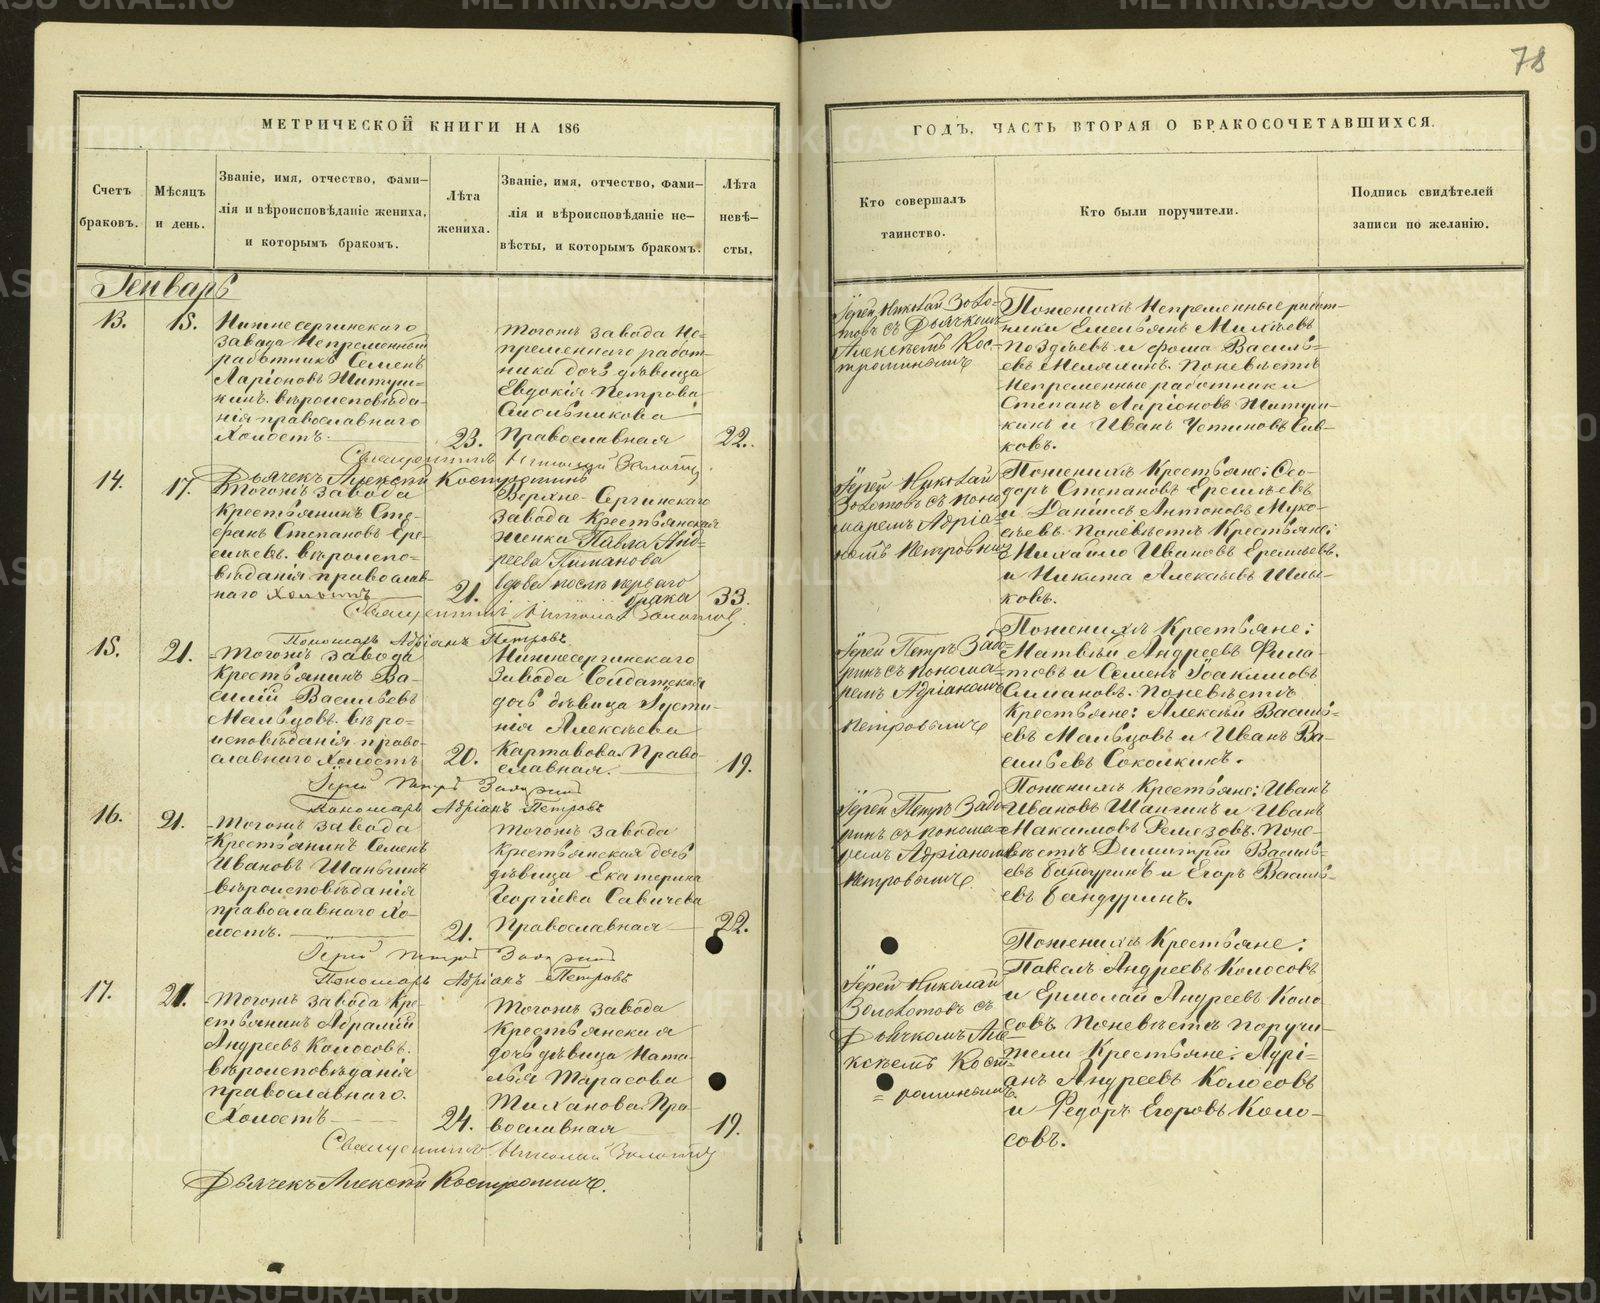 78
МЕТРИЧЕСКОЙ КНИГИ НА 186
ГОДЪ, ЧАСТЬ ВТОРАЯ О БРАКОСОЧЕТАВШИХСЯ.
Счетъ браковъ.
Мѣсяцъ и день.
Званіе, имя, отчество, фами-
лія и вѣроисповѣданіе жениха,
и которымъ бракомъ.
Лѣта
жениха.
Званіе, имя, отчество, фами-
лія и вѣроисповѣданіе не-
вѣсты, и которымъ бракомъ.
Лѣта
невѣ-
сты.
Кто совершалъ
таинство.
Кто были поручители.
Подпись свидѣтелей
записи по желанію.
Генварь
13.
15.
Нижнесергинскаго
завода Непременный
работникъ Семенъ
Ларіоновъ Шитуш-
кинъ. вѣроисповѣда-
нія православнаго
Холостъ.
23.
Тогожъ завода Не-
пременнаго работ-
ника дочь дѣвица
Евдокія Петрова
Православная
22.
Іерей Николай Золо-
товъ съ Дьячкомъ
Алексѣемъ Кос-
троминымъ
По женихѣ Непременные работ-
ники Емельянъ Михѣевъ
Поздѣевъ и Фома Василь-
евъ Мелялинъ. По невѣстѣ
Непременные работники
Степанъ Ларіоновъ Шитуш-
кинъ и Иванъ Устиновъ Сив-
ковъ.
Священникъ Николай Золотовъ
Дьячекъ Алексѣй Костроминъ
14.
17.
Тогожъ завода
Крестьянинъ Сте-
фанъ Степановъ Ере-
мѣевъ. вѣроиспо-
вѣданія православ-
наго Холостъ
21.
Верхне-Сергинскаго
завода Крестьянская
женка Павла Анд-
реева
вдова послѣ перваго
брака
33.
Іерей Николай
Золотовъ съ Поно-
маремъ Адріа-
номъ Петровымъ
По женихѣ Крестьяне: Ѳео-
доръ Степановъ Еремѣевъ
и Данилъ Антоновъ Муко-
сѣевъ. По невѣстѣ Крестьяне:
Михайло Ивановъ Еремѣевъ.
и Никита Алексѣевъ Шлы-
ковъ.
Священникъ Николай Золотовъ
Пономарь Адріанъ Петровъ
15.
21.
Тогожъ завода
Крестьянинъ Ва-
силій Васильевъ
Мальцовъ. вѣро-
исповѣданія право-
славнаго Холостъ
20.
Нижнесергинскаго
завода Солдатская
дочь дѣвица Густи-
нія Алексѣева
Картавова. Право-
славная.
19.
Іерей Петръ Задо-
ринъ съ Понома-
ремъ Адріаномъ
Петровымъ
По женихѣ Крестьяне:
Матвѣй Андреевъ Фила-
товъ и Семенъ Іоакимовъ
Симановъ. По невѣстѣ
Крестьяне: Алексѣй Василь-
евъ Мальцовъ и Иванъ Ва-
сильевъ Соколкинъ.
Іерей Петръ Задоринъ
Пономарь Адріанъ Петровъ
16.
21.
Тогожъ завода
Крестьянинъ Семенъ
Ивановъ Шаньгинъ
вѣроисповѣданія
православнаго Хо-
лостъ.
21.
Тогожъ завода
Крестьянская дочь
дѣвица Екатерина
Георгіева Савичева
Православная
22.
Іерей Петръ Задо-
ринъ съ Понома-
ремъ Адріаномъ
Петровымъ
По женихѣ Крестьяне: Иванъ
Ивановъ Шангинъ и Иванъ
Максимовъ Ремезовъ. По не-
вѣстѣ Димитрій Василь-
евъ Бандуринъ и Егоръ Василь-
евъ Бандуринъ.
Іерей Петръ Задоринъ
Пономарь Адріанъ Петровъ
17.
21.
Тогожъ завода Кре-
стьянинъ Абрамій
Андреевъ Колосовъ.
вѣроисповѣданія
православнаго.
Холостъ
24.
Тогожъ завода
Крестьянская
дочь дѣвица Ната-
лья Тарасова
Тиханова. Пра-
вославная
19.
Іерей Николай
Золотовъ съ
Дьячкомъ Але-
ксѣемъ Кост-
роминымъ
По женихѣ Крестьяне:
Павелъ Андреевъ Колосовъ
и Ермолай Андреевъ Коло-
совъ. По невѣстѣ поручи-
тели Крестьяне: Адрі-
анъ Андреевъ Колосовъ
и Федоръ Егоровъ Коло-
совъ.
Священникъ Николай Золотовъ
Дьячекъ Алексѣй Костроминъ.
METRIKI.GASO-URAL.RU